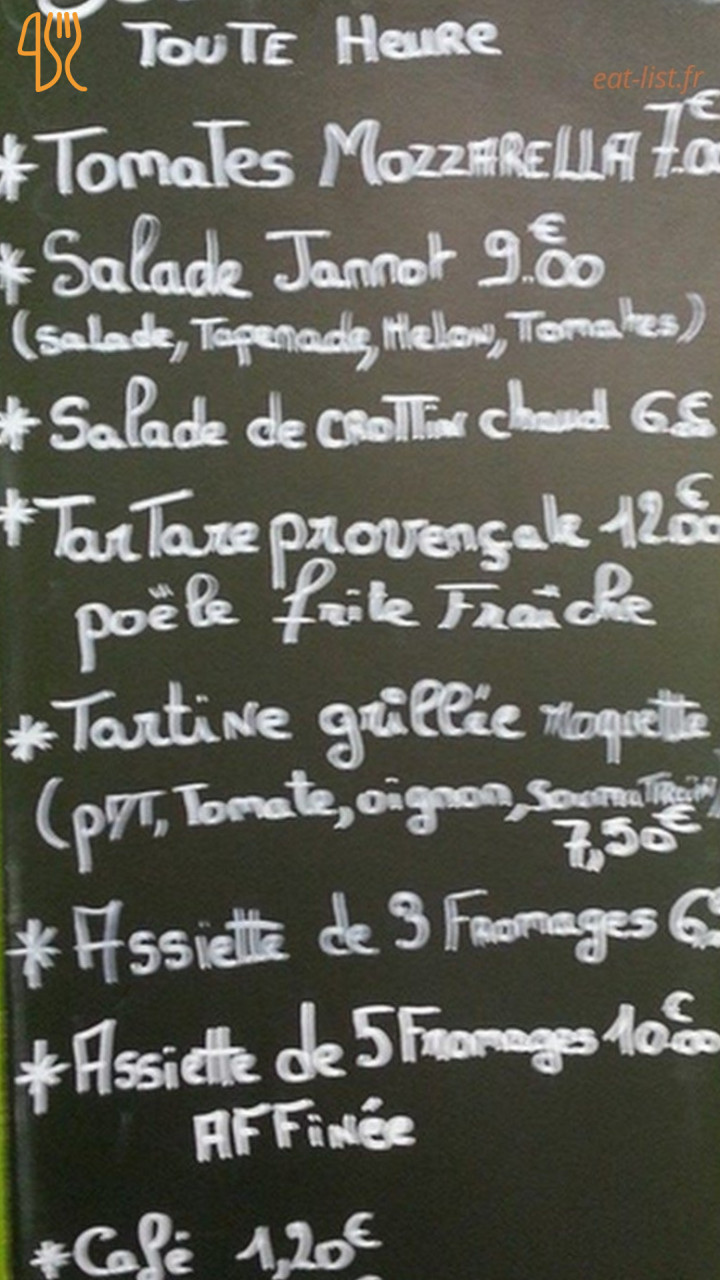 TOUTE Heure
eat-list.fr
* Tomates MOZZARELLA 7.00€
* Salade Jannot 9.00€
(salade, Tapenade, Melon, Tomates)
* Salade de CROTTIN chaud 6€
* TarTare provençale 12.00€
poële frite Fraîche
* Tartine grillée roquette
(pdT, Tomate, oignon,
7,50€
* Assiette de 3 Fromages 6
* Assiette de 5 Fromages 10.00€
AFFiNée
* Café 1,20€